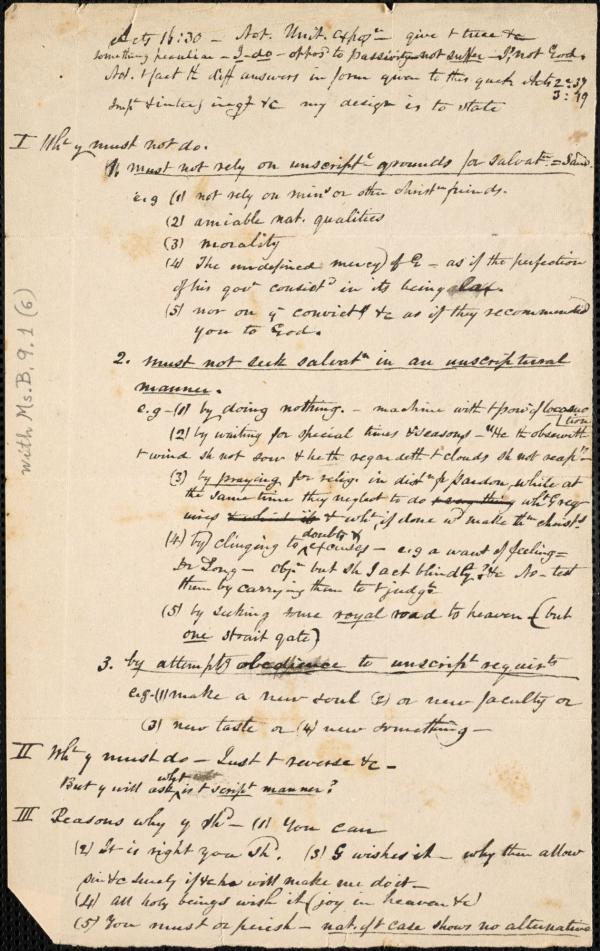 Acts 16:30 – Not. Unit. Expos - give t true &c
something peculiar – I-do – oppos to passivity - not suffer - I, not God.
Not. t fact tht diff answers in form given to this quest Acts 2:37
3:19
& my design is to state
I Wht y must not do.
1. must not rely on unscriptl grounds for salvatn
e.g (1) not rely on minrs or other Christn friends.
(2) amiable nat. qualities
(3) morality
(4) The undefined mercy of G – as if the perfection
of his govt consistd in its being lax.
(5) nor on yr convictns &c as if they recommended
you to God.
2. must not seek salvatn in an unscriptural
manner.
e.g – (1) by doing nothing. – machine with t powr of locomo
tion
(2) by waiting for special times & seasons – "He tht observeth
t wind sh not sow & he th regardeth t clouds sh not reap" –
(3) by praying for relign in distn fr pardon, while at
the same time they neglect to do every thing wht G req
uires & wht, if done wd make thm christns
(4) by clinging to doubts & excuses – e.g a want of feeling =
Dr Long – obj. but sh I act blindly? &c No – test
them by carrying them to t judgt
(5) by seeking some royal road to heaven (but
one strait gate)
3. by attemptg obedience to unscriptl requirts
e.g – (1) make a new soul (2) or new faculty or
(3) new taste or (4) new something –
II Wht y must do – Just t reverse &c –
But y will ask what is t script manner?
III Reasons why y shd – (1) You can
(2) It is right you shd. (3) G wishes it – why then allow
sin &c surely if he will make me do it –
(4) all holy beings wish it (joy in heaven &c)
(5) You must or perish – nat. of t case shows no alternative
with Ms. B. 9.1 (6)